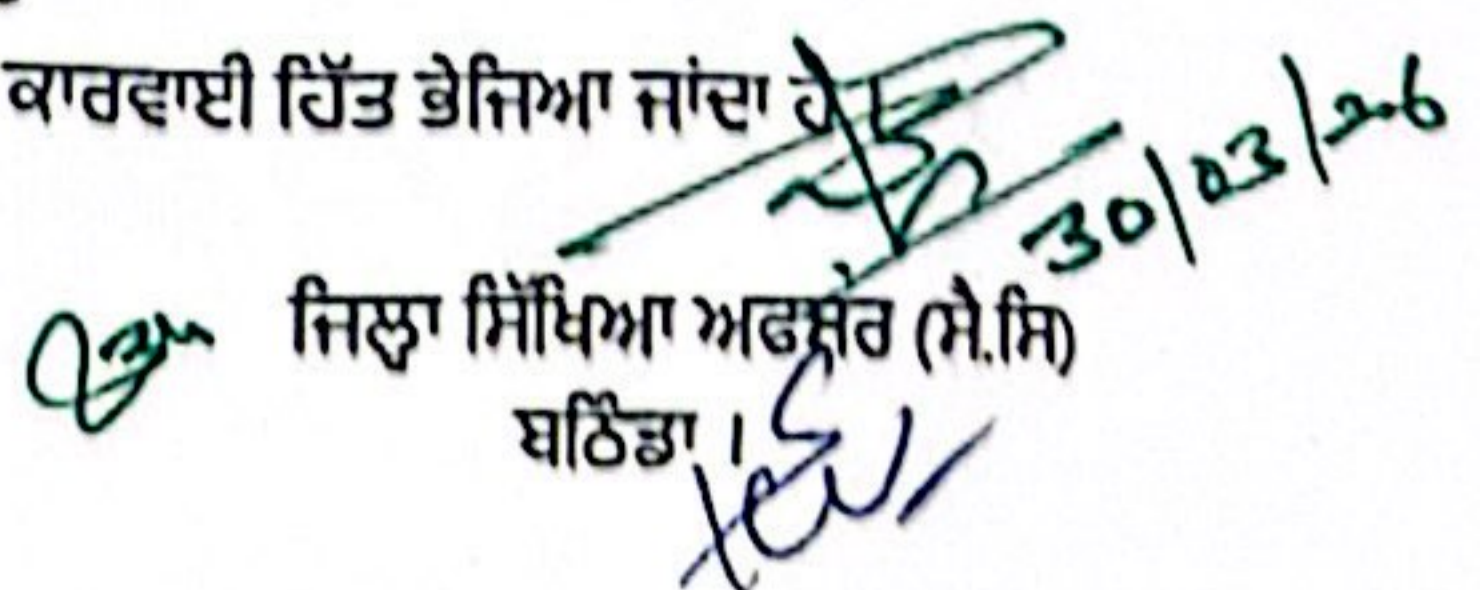 ਕਾਰਵਾਈ ਹਿੱਤ ਭੇਜਿਆ ਜਾਂਦਾ ਹੈ
30/03/26
ਜਿਲ੍ਹਾ ਸਿੱਖਿਆ ਅਫਸਰ (ਸੈ.ਸਿ)
ਬਠਿੰਡਾ ।